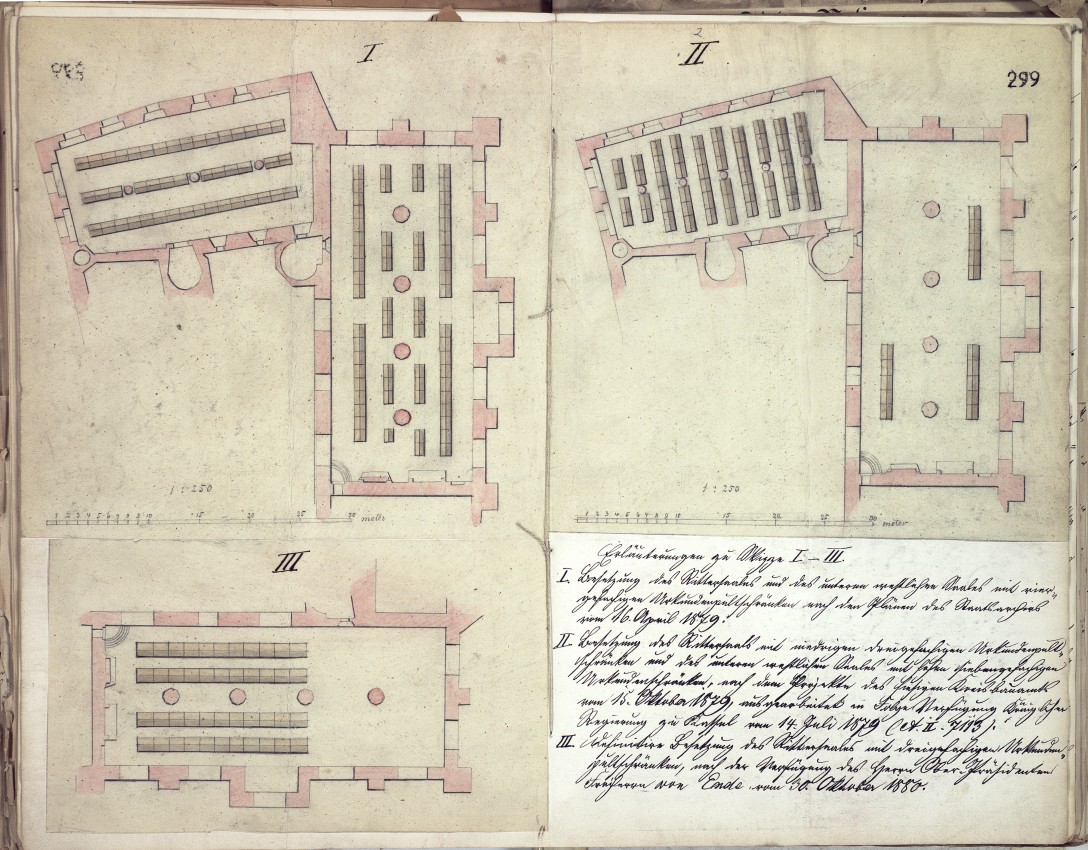 I
II
2
299
299
1 : 250
1 2 3 4 5 6 7 8 9 10 15 20 25 30 meter
1 : 250
1 2 3 4 5 6 7 8 9 10 15 20 25 30 meter
III
Erläuterungen zu Skizze I – III.
I. Besetzung des Rittersaales und des unteren westlichen Saales mit vier-
gefachigen Urkundenpultschränken nach den Plänen des Staatsarchivs
vom 16. April 1879.
II. Besetzung des Rittersaals mit niedrigen dreigefachigen Urkundenpult-
schränken und des unteren westlichen Saales mit hohen siebengefachigen
Urkundenschränken, nach dem Projekte des hiesigen Kreisbauamts
vom 15. Oktober 1879, ausgearbeitet in Folge Verfügung Königlicher
Regierung zu Kassel vom 14. Juli 1879 (A. II. 7193).
III. Definitive Besetzung des Rittersaales mit dreigefachigen Urkunden-
pultschränken, nach der Verfügung des Herrn Ober-Präsidenten
Freiherrn von Ende vom 30. Oktober 1880.